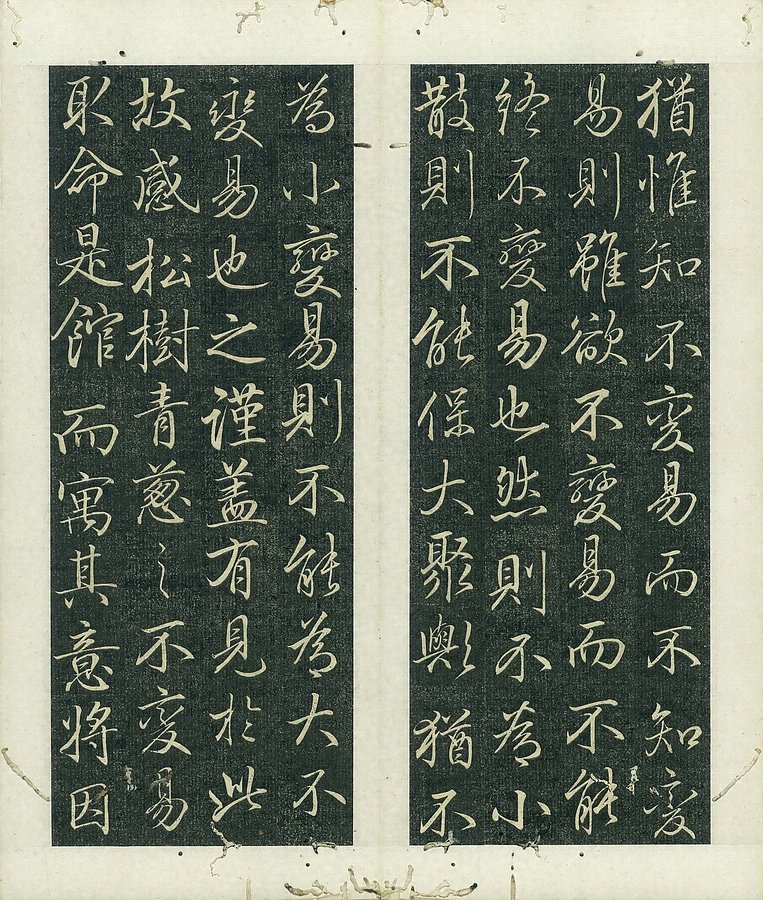 猶惟知不变易而不知变
易則雖欲不變易而不能
終不變易也然則不為小
散則不能保大聚歟猶不
為小變易則不能為大不
變易也之謹盖有見於此
故感松樹青蔥之不变易
取命是館而寓其意將因